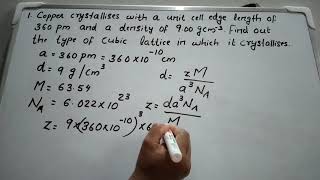 1. Copper crystallises with a unit cell edge length of
360 pm and a density of 9.00 gcm⁻³. Find out
the type of cubic lattice in which it crystallises.
a = 360 pm = 360×10⁻¹⁰ cm
d = 9 g/cm³ d = zM/a³NA
M = 63.54
NA = 6.022×10²³ z = da³NA/M
z = 9×(360×10⁻¹⁰)³×6